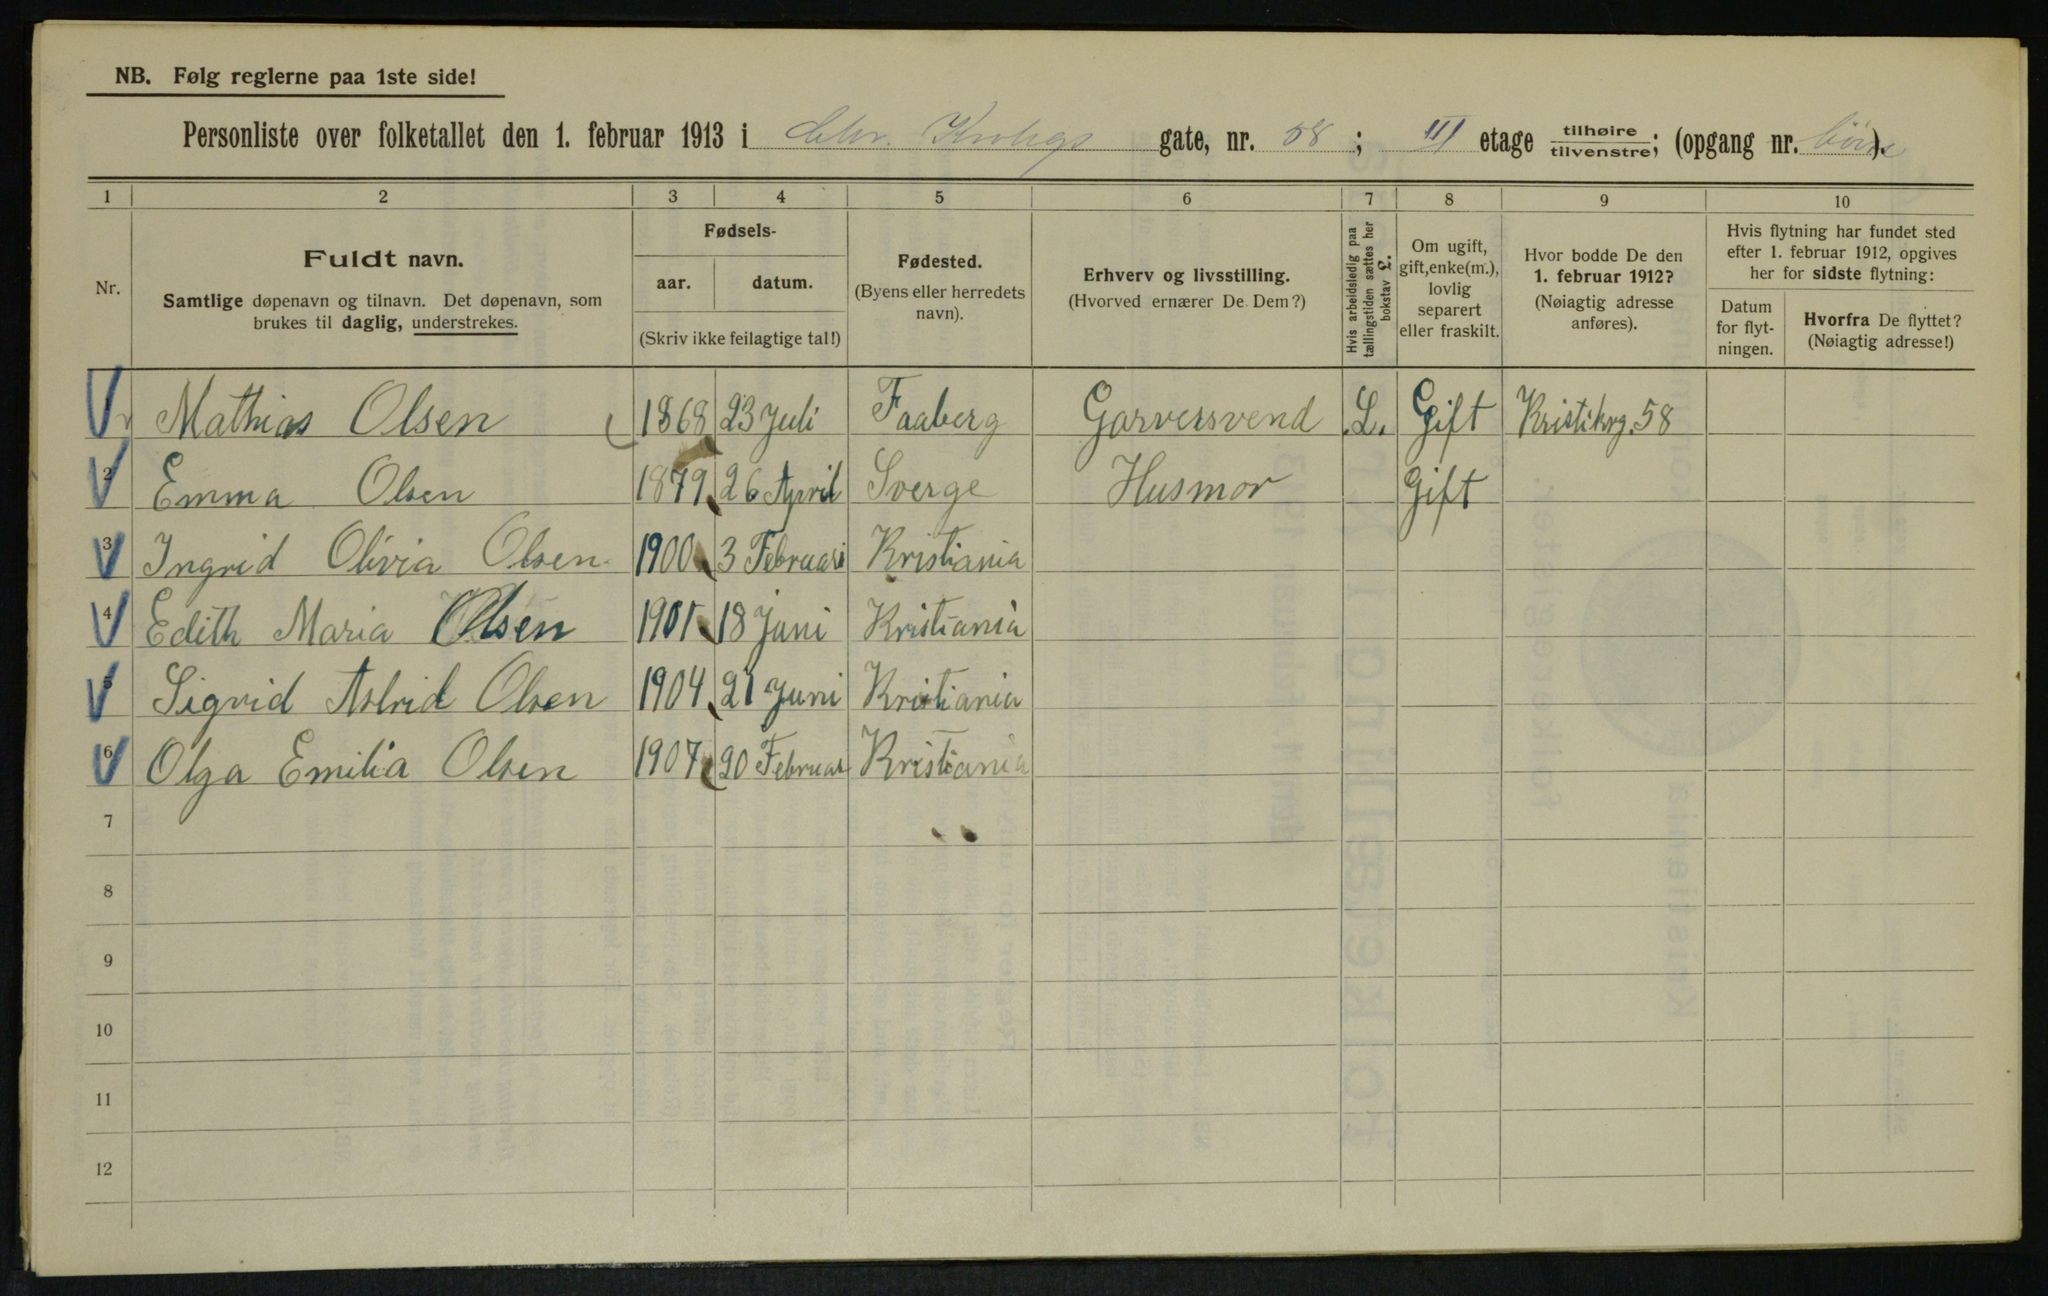 NB. Følg reglerne paa 1ste side!
Personliste over folketallet den 1. februar 1913 i Chr. Krohgs gate, nr. 58; III etage tilhøire tilvenstre; (opgang nr. ).
1 2 3 4 5 6 7 8 9 10
Nr.
Fuldt navn.
Samtlige døpenavn og tilnavn. Det døpenavn, som
brukes til daglig, understrekes.
Fødsels-
aar. datum.
(Skriv ikke feilagtige tal!)
Fødested.
(Byens eller herredets
navn).
Erhverv og livsstilling.
(Hvorved ernærer De Dem?)
Hvis arbeidsledig paa
tællingstiden sættes her
bokstav L.
Om ugift,
gift, enke(m.),
lovlig
separert
eller fraskilt.
Hvor bodde De den
1. februar 1912?
(Nøiagtig adresse
anføres).
Hvis flytning har fundet sted
efter 1. februar 1912, opgives
her for sidste flytning:
Datum
for flyt-
ningen.
Hvorfra De flyttet?
(Nøiagtig adresse!)
1 Mathias Olsen 1868 23 Juli Faaberg Garversvend .L. Gift Kristikrg. 58
2 Emma Olsen 1879 26 April Sverge Husmor Gift
3 Ingrid Olivia Olsen 1900 3 Februari Kristiania
4 Edith Maria Olsen 1901 18 Juni Kristiania
5 Sigrid Astrid Olsen 1904 21 Juni Kristiania
6 Olga Emilia Olsen 1907 20 Februar Kristiania
7
8
9
10
11
12